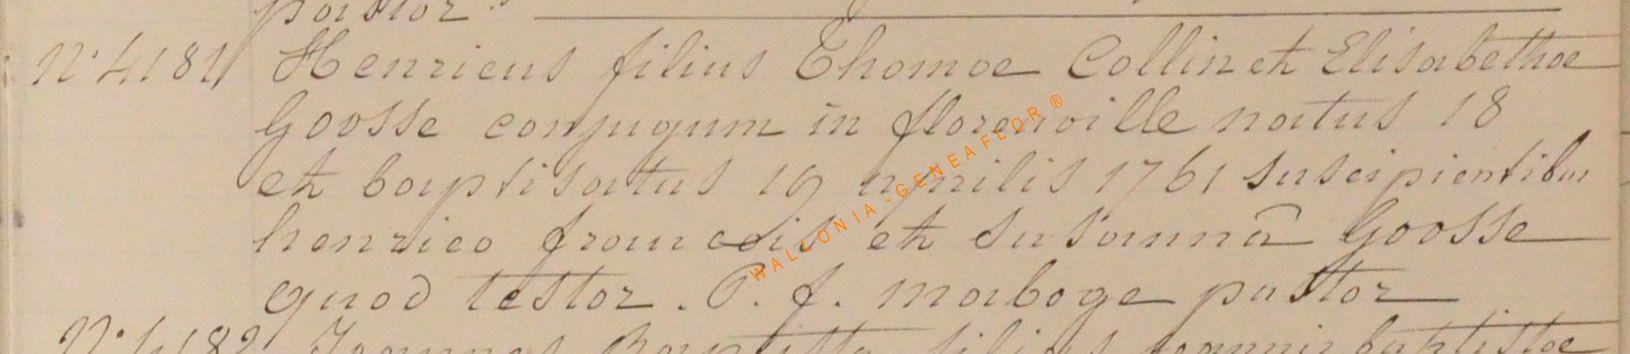 pastor.
N° 4181 Henricus filius Thomoe Collin et Elisabethoe
Goosse conjugum in florenville natus 18
et baptisatus 19 aprilis 1761 suscipientibus
henrico francois et susannâ Goosse
quod testor. P. f. maboge pastor
N° 4182 Joannes Baptista filius joannis baptistoe
WALLONIA-GENEAFLOR ®